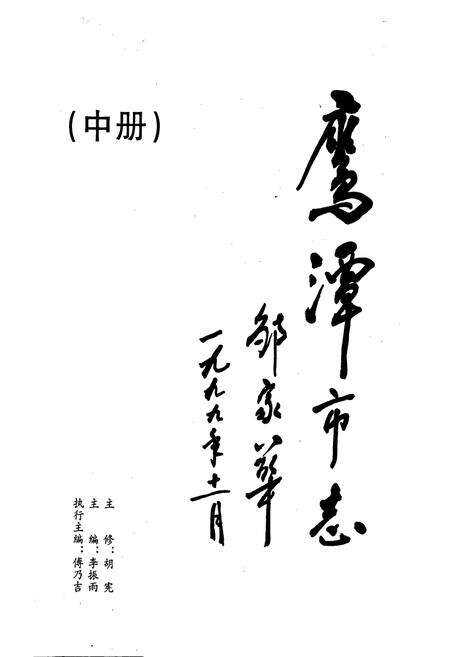 鹰潭市志
邹家华
一九九九年十一月
（中册）
主修：胡宪
主编：李振雨
执行主编：傅乃吉